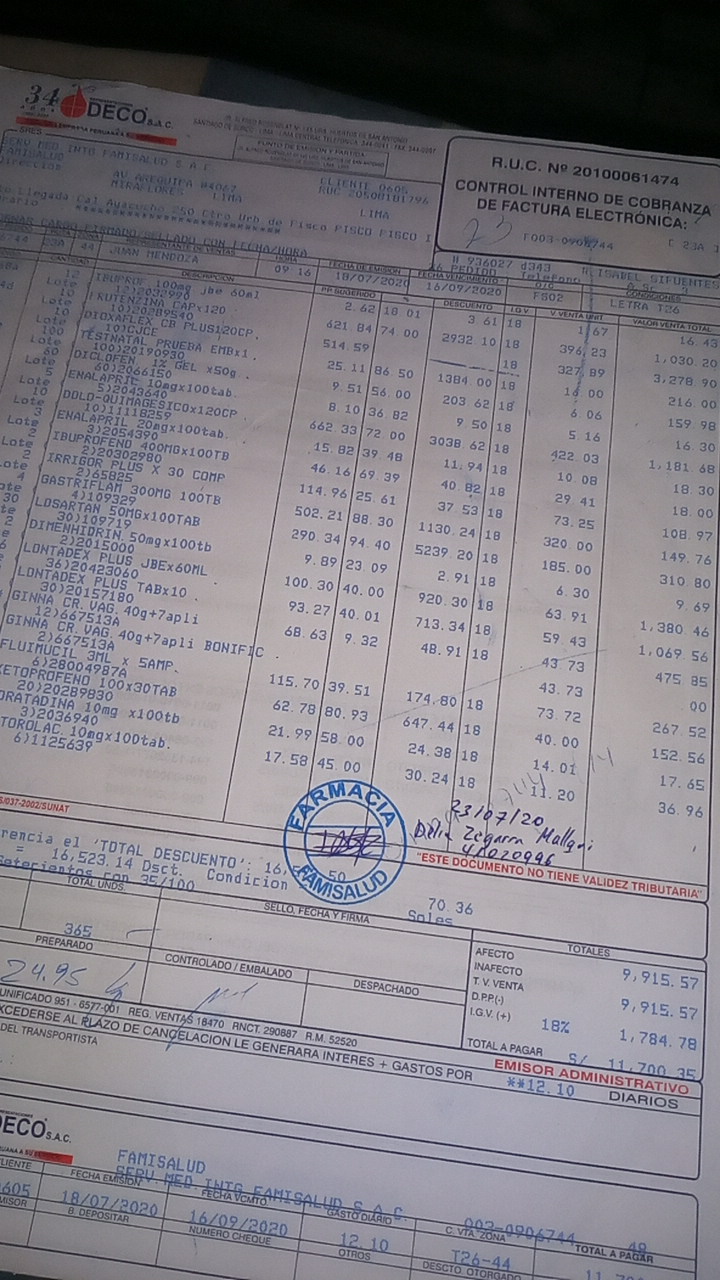 34
DECO S.A.C.
PUNTO DE EMISION Y PARTIDA
R.U.C. Nº 20100061474
CONTROL INTERNO DE COBRANZA
DE FACTURA ELECTRÓNICA:
23
F003-0906744
SRES
SERV MED INTG FAMISALUD S A C
FAMISALUD
CLIENTE 0605
RUC 20508181796
AV AREQUIPA #4062
MIRAFLORES LIMA
LIMA
Llegada:Cal Ayacucho 250 Ctro Urb de Pisco PISCO PISCO I
FIRMADO/SELLADO CON FECHA/HORA
REPRESENTANTE DE VENTAS
HORA
FECHA DE EMISION
FECHA VENCIMIENTO
CONDICIONES
44
JUAN MENDOZA
09 16
18/07/2020
16/09/2020
FS02
LETRA T26
CANTIDAD
DESCRIPCION
PP.SUGERIDO
%
DESCUENTO
I.G.V.
V. VENTA UNIT.
VALOR VENTA TOTAL
12
IBUPROF 100mg jbe 60ml
2.62
18 01
3.61
18
1 67
16.43
Lote
12)2032990
10
FRUTENZINA CAPx120
621.84
74.00
2932 10
18
396.23
1,030.20
Lote
10)20289540
10
DIOXAFLEX CB PLUS120CP.
514.59
18
327.89
3,278.90
Lote
10)CJCE
100
TESTNATAL PRUEBA EMBx1.
25.11
86.50
1384.00
18
14 00
216.00
Lote
100)20190930
60
DICLOFEN 1% GEL x50g.
9.51
56.00
203 62
18
6.06
159.98
Lote
60)2066150
5
ENALAPRIL 10mgx100tab.
8.10
36.82
9.50
18
5.16
16.30
Lote
5)2043640
10
DOLO-QUIMAGESICOx120CP
662.33
72.00
3038.62
18
422.03
1,181.68
Lote
10)11118259
3
ENALAPRIL 20mgx100tab.
15.82
39.48
11.94
18
10.08
18.30
Lote
3)2054390
2
IBUPROFENO 400MGx100TB
46.16
69.39
40.82
18
29.41
18.00
Lote
2)20302980
2
IRRIGOR PLUS X 30 COMP
114.96
25.61
37.53
18
73.25
108.97
Lote
2)65825
4
GASTRIFLAM 300MG 100TB
502.21
88.30
1130.24
18
320.00
149.76
4)109329
30
LOSARTAN 50MGx100TAB
290.34
94.40
5239.20
18
185.00
310.80
30)109719
2
DIMENHIDRIN.50mgx100tb
9.89
23.09
2.91
18
6.30
9.69
2)2015000
LONTADEX PLUS JBEx60ML
100.30
40.00
920.30
18
63.91
1,380.46
36)20423060
LONTADEX PLUS TABx10.
93.27
40.01
713.34
18
59.43
1,069.56
30)20157180
GINNA CR.VAG.40g+7apli
68.63
9.32
48.91
18
43.73
475 85
12)667513A
GINNA CR.VAG.40g+7apli BONIFIC.
43.73
00
2)667513A
FLUIMUCIL 3ML x 5AMP.
115.70
39.51
174.80
18
73.72
267.52
6)28004987A
KETOPROFENO 100x30TAB
62.78
80.93
647.44
18
40.00
152.56
20)20289830
ORATADINA 10mg x100tb
21.99
58.00
24.38
18
14.01
17.65
3)2036940
TOROLAC 10mgx100tab.
17.58
45.00
30.24
18
11.20
36.96
6)1125639
/037-2002/SUNAT
FARMACIA
FAMISALUD
23/07/20
"ESTE DOCUMENTO NO TIENE VALIDEZ TRIBUTARIA"
rencia el 'TOTAL DESCUENTO': 16,
= 16,523.14 Dsct. Condicion
50
70.36
Setecientos con 35/100
Soles
TOTAL UNDS.
SELLO, FECHA Y FIRMA
TOTALES
365
PREPARADO
CONTROLADO / EMBALADO
DESPACHADO
24.95
AFECTO
9,915.57
INAFECTO
T. V. VENTA
9,915.57
D.P.P.(-)
I.G.V. (+)
18%
1,784.78
TOTAL A PAGAR
S/ 11,700.35
UNIFICADO 951 - 6577-001 REG. VENTAS 18470 RNCT. 290887 R.M. 52520
EXCEDERSE AL PLAZO DE CANCELACION LE GENERARA INTERES + GASTOS POR
**12.10 DIARIOS
EMISOR ADMINISTRATIVO
DEL TRANSPORTISTA
DECO S.A.C.
FAMISALUD
SERV.MED.INTG.FAMISALUD S.A.C.
003-0906744
CLIENTE
FECHA EMISIÓN
FECHA VCMTO.
GASTO DIARIO
C. VTA. ZONA
TOTAL A PAGAR
0605
18/07/2020
16/09/2020
12.10
T26-44
B. DEPOSITAR
NUMERO CHEQUE
OTROS
DESCTO. OTORGADO